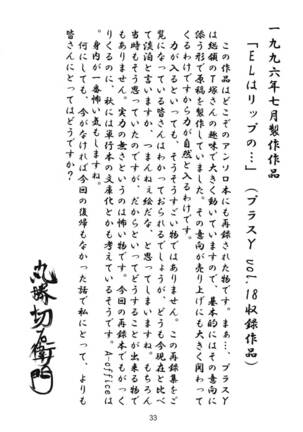 一九九六年七月製作作品
「ELはリップの…」(プラスY vol.18収録作品)
この作品はどこぞのアンソロ本にも再録された物です。まぁ…、プラスY
は総領のT塚さんの趣味で大きく動いていますので、基本的にはその意向に
添う形で原稿を製作していました。その意向が売り上げにも大きく関わって
くるわけですから力が自然と入るわけです。
力が入るといっても、そうそうすごい物ではありません。この再録集をご
覧になっている皆さんはわかっておられるでしょうが、どうも今現在と比べ
て淡泊と言いますか、つまんねぇ絵だな、と思ってしまいますね。もちろん
当時もそう思っていたのですが、だからといってどうすることが出来る物で
もありません。実力の無さというのは怖い物です。今回の再録本でもがっく
りくるのに、秋には単行本の文庫化とかも考えているそうです。A-officeは
。身内が一番怖い気もしますね。
何にしても、今がなければ今回の復帰もなかった話で私にとって、よりも
皆さんにとってはどうですか?
丸勝切左衛門
33